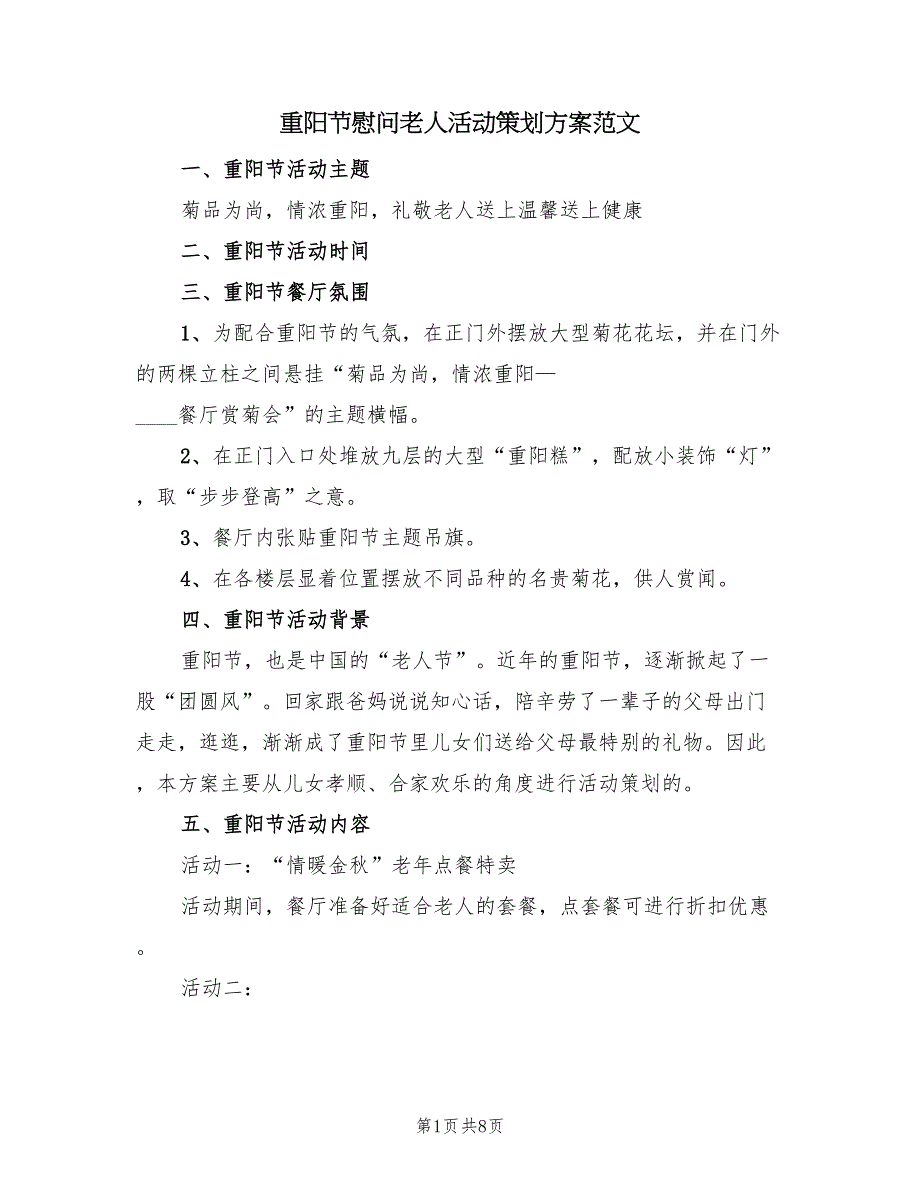 重阳节慰问老人活动策划方案范文
一、重阳节活动主题
菊品为尚，情浓重阳，礼敬老人送上温馨送上健康
二、重阳节活动时间
三、重阳节餐厅氛围
1、为配合重阳节的气氛，在正门外摆放大型菊花花坛，并在门外
的两棵立柱之间悬挂“菊品为尚，情浓重阳—
____餐厅赏菊会”的主题横幅。
2、在正门入口处堆放九层的大型“重阳糕”，配放小装饰“灯”
，取“步步登高”之意。
3、餐厅内张贴重阳节主题吊旗。
4、在各楼层显着位置摆放不同品种的名贵菊花，供人赏闻。
四、重阳节活动背景
重阳节，也是中国的“老人节”。近年的重阳节，逐渐掀起了一
股“团圆风”。回家跟爸妈说说知心话，陪辛劳了一辈子的父母出门
走走，逛逛，渐渐成了重阳节里儿女们送给父母最特别的礼物。因此
，本方案主要从儿女孝顺、合家欢乐的角度进行活动策划的。
五、重阳节活动内容
活动一：“情暖金秋”老年点餐特卖
活动期间，餐厅准备好适合老人的套餐，点套餐可进行折扣优惠
。
活动二：
第1页 共8页